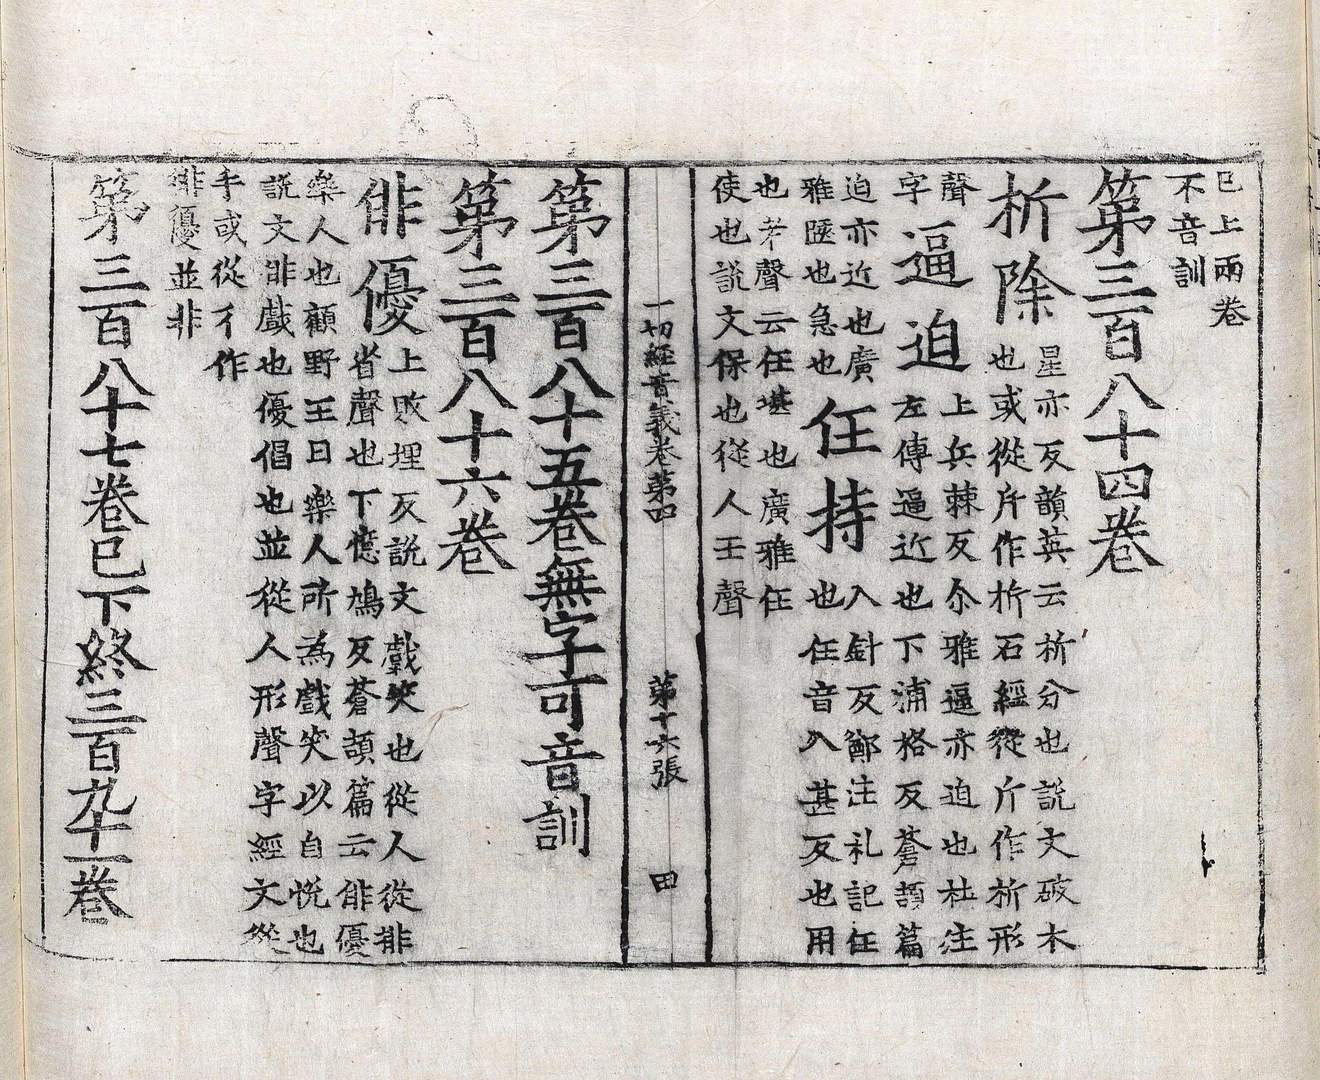 已上兩卷
不音訓
第三百八十四卷
析除
星亦反韻英云析分也說文破木
也或從片作㭊石經從斤作析形
聲
字
逼迫
上兵棘反尒雅逼亦迫也杜注
左傳逼近也下浦格反蒼頡篇
迫亦近也廣
雅匧也急也
任持
入針反鄭注礼記任
也任音入甚反也用
也聲云任堪也廣雅任
使也說文保也從人壬聲
一切經音義卷第四 第十六張 田
第三百八十五卷無字可音訓
第三百八十六卷
俳優
上敗埋反說文戲笑也從人從排
省聲也下憶鳩反蒼頡篇云俳優
樂人也顧野王曰樂人所為戲笑以自悅也
說文俳戲也優倡也並從人形聲字經文從
手或從彳作
徘㣭並非
第三百八十七卷已下終三百九十一卷